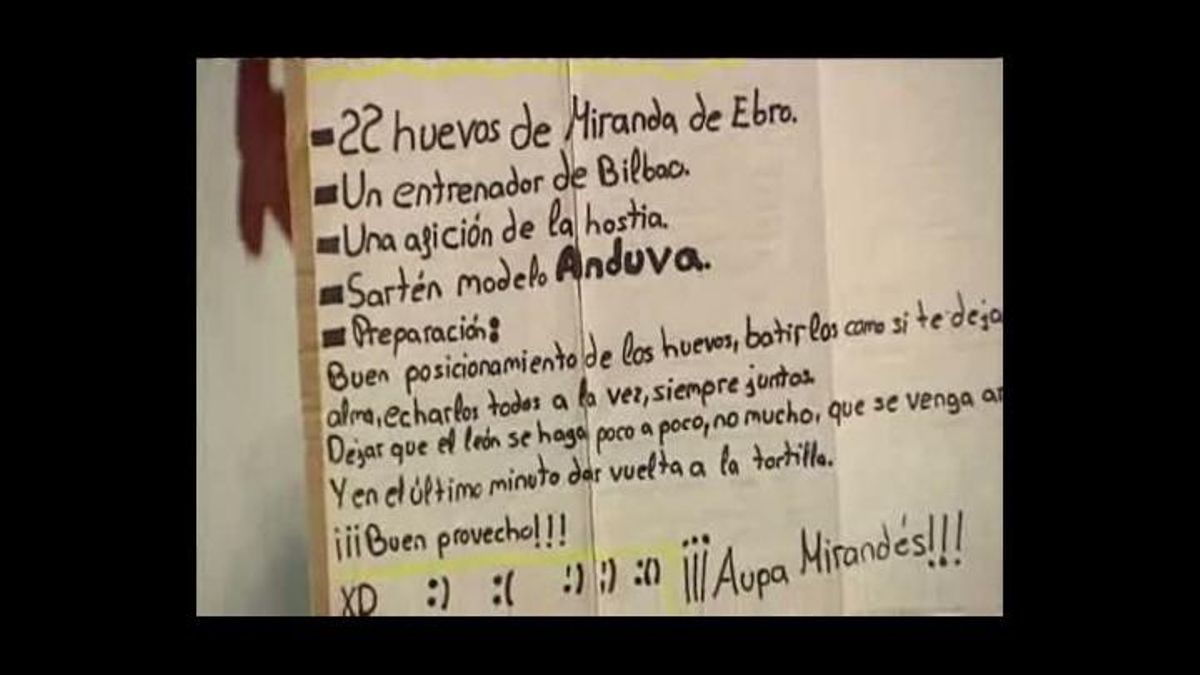 -22 huevos de Miranda de Ebro.
-Un entrenador de Bilbao.
-Una afición de la hostia.
-Sartén modelo Anduva.
-Preparación:
Buen posicionamiento de los huevos, batirlos como si te deja
alma, echarlos todos a la vez, siempre juntos.
Dejar que el león se haga poco a poco, no mucho, que se venga
Y en el último minuto dar vuelta a la tortilla.
¡¡¡Buen provecho!!!
XD :) :( :) ;) :() ¡¡¡Aupa Mirandés!!!